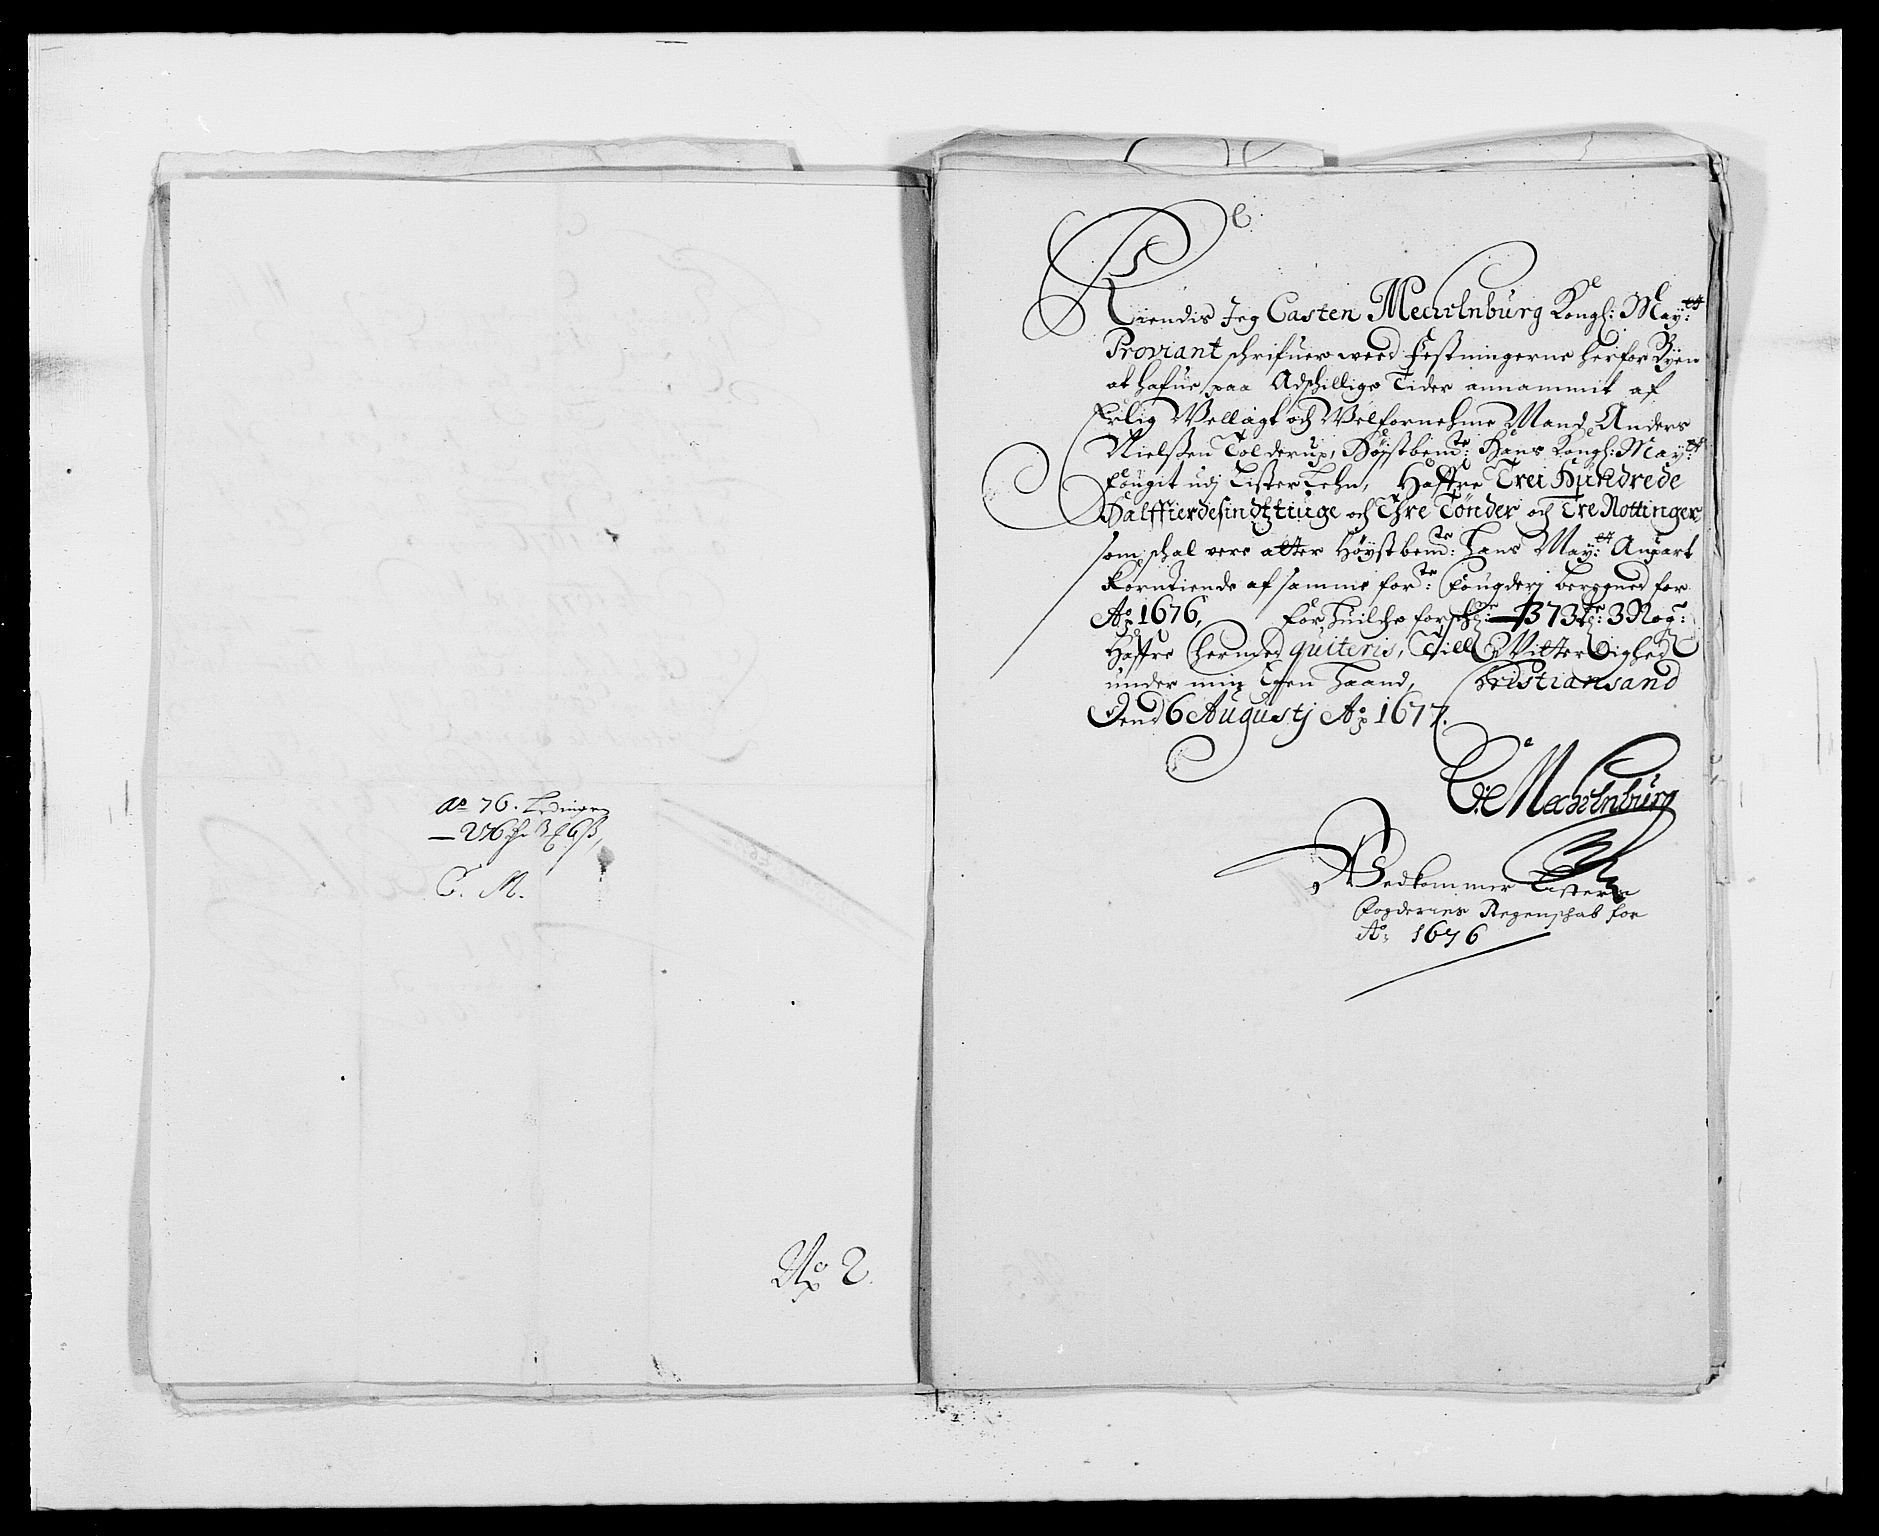 Ao 76. Ledingen
C. M.
No 2.
Kiendis Jeg Casten Mechlnburg Kongl: May:tt
Proviant schrifuer weed Festningerne herfor Byen
at hafue paa Adschillige Tider annammit af
Erlig Wellagt och Velfornehme Mand Anders
Nielssen Tolderup, Høystbemte: Hans Kongl: May:tt
fougit udj Lister Lehn, Haffre Trei Hundrede
Halffierdesindtztiuge och Thre Tønder och Tre Nottinger
som schal vere atter Høystbemte: Hans May:tt Anpart
Korntiende af samme forte: Fougderj beregned for
Ao 1676, For huilche forschr:ne 373 tr: 3 Nog:
Haffre hermed quiteris, Till Vitterlighed
under min Egen Haand, Christiansand
Dend 6 Augustj Ao 1677.
C: Mechlnburg
Vedkommer Listers
Fogderies Regenschab for
Ao: 1676